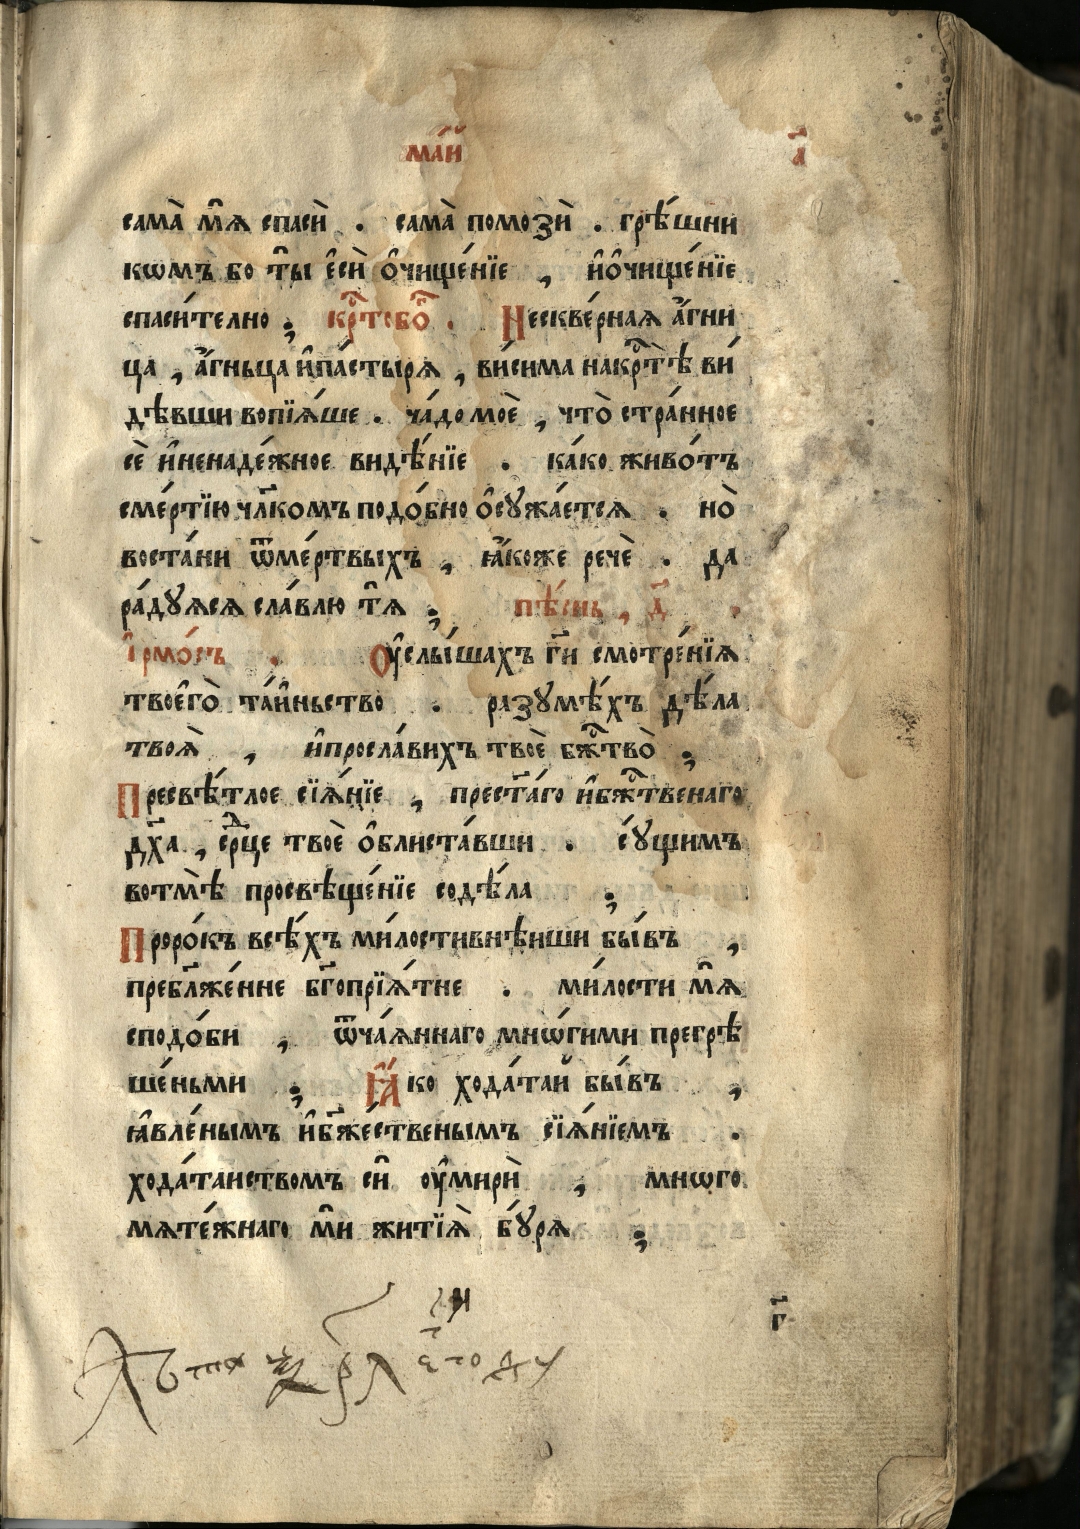 ма́й
а҃
сама̀ мѧ̑ спасѝ . сама̀ помозѝ . грѣ́шни
кѡмъ бо ты̑ є҆сѝ ѻ҆чище́нїе , и҆ѻ҆чище́нїе
спаси́телно ; крⷭ҇тобоⷢ҇ . Нескве́рнаѧ а҆́гни
ца , а҆́гньца и҆па́стырѧ , ви́сима накрⷭ҇тѣ̀ ви́
дѣвши вопїѧ́ше . ча́до моѐ , что̀ стра́нное
сѐ и҆ненаде́жное видѣ́нїе . ка́ко живо́тъ
сме́ртїю чл҃комъ подо́бно ѻ҆сужа́етсѧ . но̀
воста́ни ѿме́ртвыхъ , ꙗ҆́коже речѐ . да
ра́дуѧсѧ сла́влю тѧ̑ ; пѣ́снь , д҃ .
І҆рмо́съ . Оу҆слы́шахъ гⷭ҇и смотре́нїѧ
твоегѡ̀ та́иньство . разумѣ́хъ дѣ́ла
твоѧ̀ , и҆просла́вихъ твоѐ бжⷭ҇тво̀ ;
Пресвѣ́тлое сїѧ́нїе , прест҃а́го и҆бжⷭ҇твенаго
дх҃а , срⷣце твоѐ ѻ҆блиста́вши . су́щимъ
вотмѣ̀ просвѣще́нїе содѣ́ла ;
Проро́къ всѣ́хъ ми́лостивнѣиши бы́въ ,
пребл҃же́нне бг҃опрїѧ́тне . ми́лости мѧ̑
сподо́би , ѿча́ѧннаго мнѡ́гими прегрѣ
ше́ньми ; Ꙗ҆́ко хода́тай бы́въ ,
ꙗ҆вле́нымъ и҆бж҃е́ственымъ сїѧ́нїемъ .
хода́таиством си̑ оу҆мирѝ , мнѡго
мѧте́жнаго ми̑ житїѧ̀ бу́рѧ ;
г҃